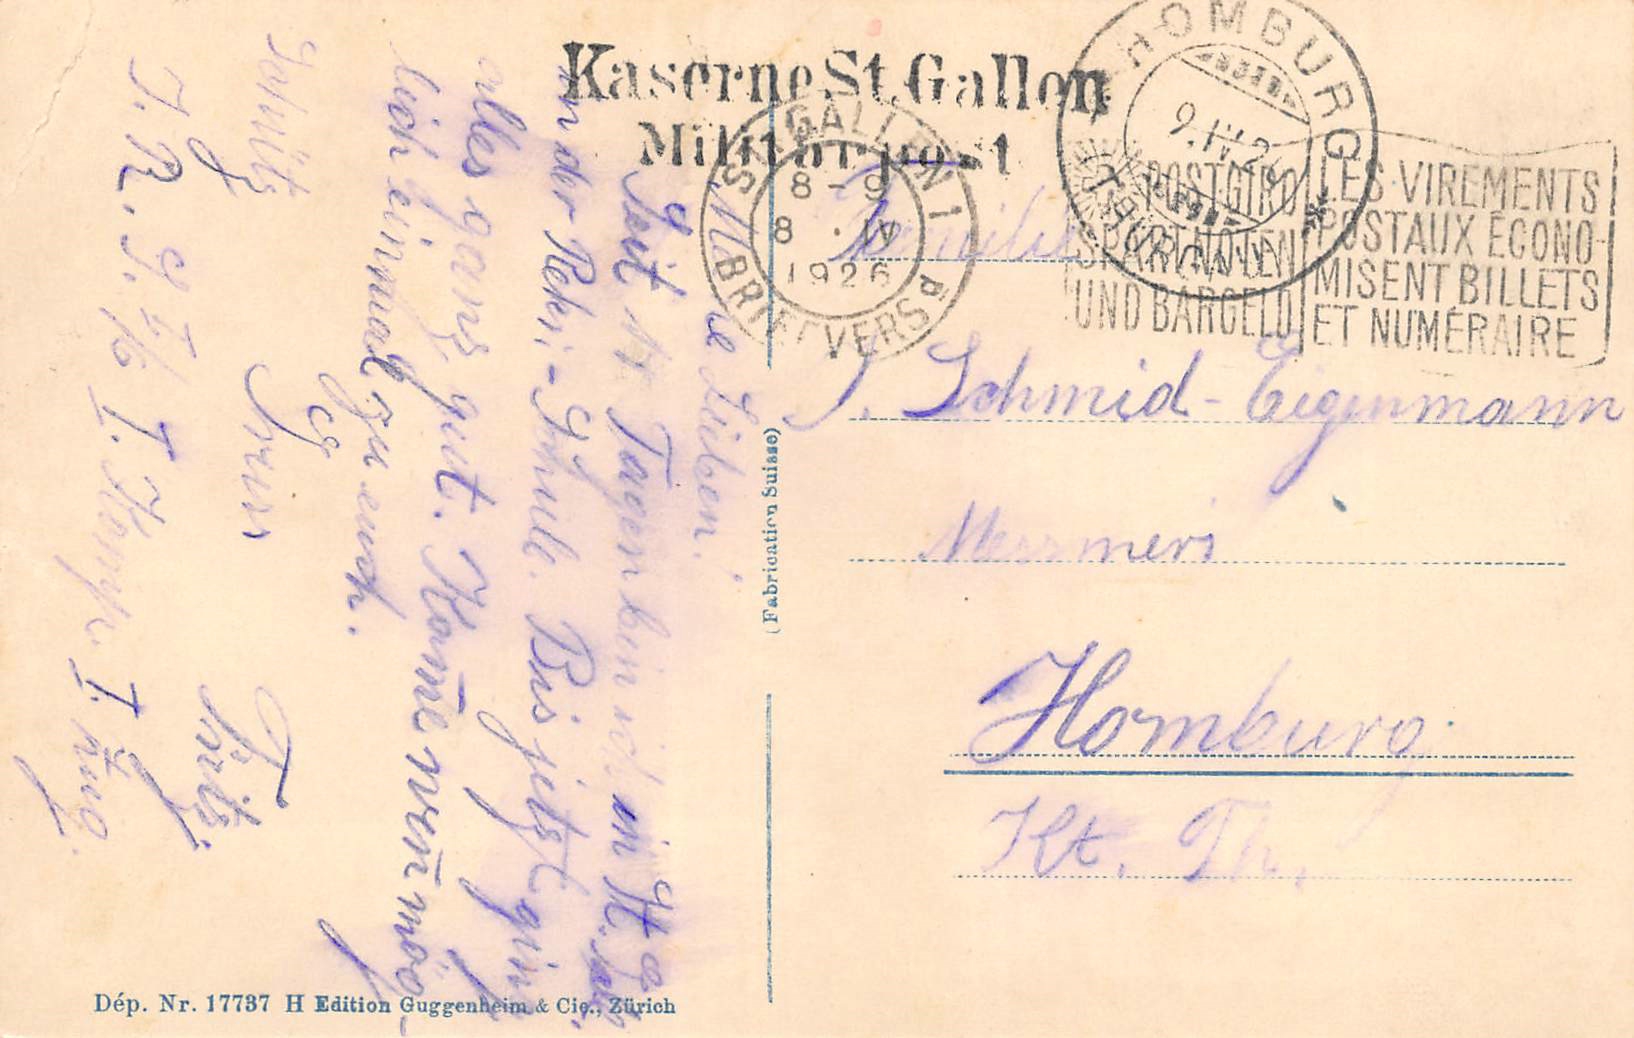 Kaserne St. Gallen
Militärpost
ST. GALLEN 1
8-9
8.IV
1926
BRIEFVERS
HOMBURG
9.IV.26
(THURGAU)
POSTGIRO
SPART NOTEN
UND BARGELD
LES VIREMENTS
POSTAUX ÉCONO-
MISENT BILLETS
ET NUMÉRAIRE
Familie
J. Schmid-Eigenmann
Homburg
Kt. Th.
Meine Lieben!
Seit 14 Tagen bin ich in St.
in der Rekr.-Schule. Bis jetzt ging
alles ganz gut. Kom̄e wen̄ mög-
lich einmal zu euch.
Es
Schütz Fritz
J.R. I. Komp. I. Zug.
(Fabrication Suisse)
Dép. Nr. 17737 H Edition Guggenheim & Cie., Zürich